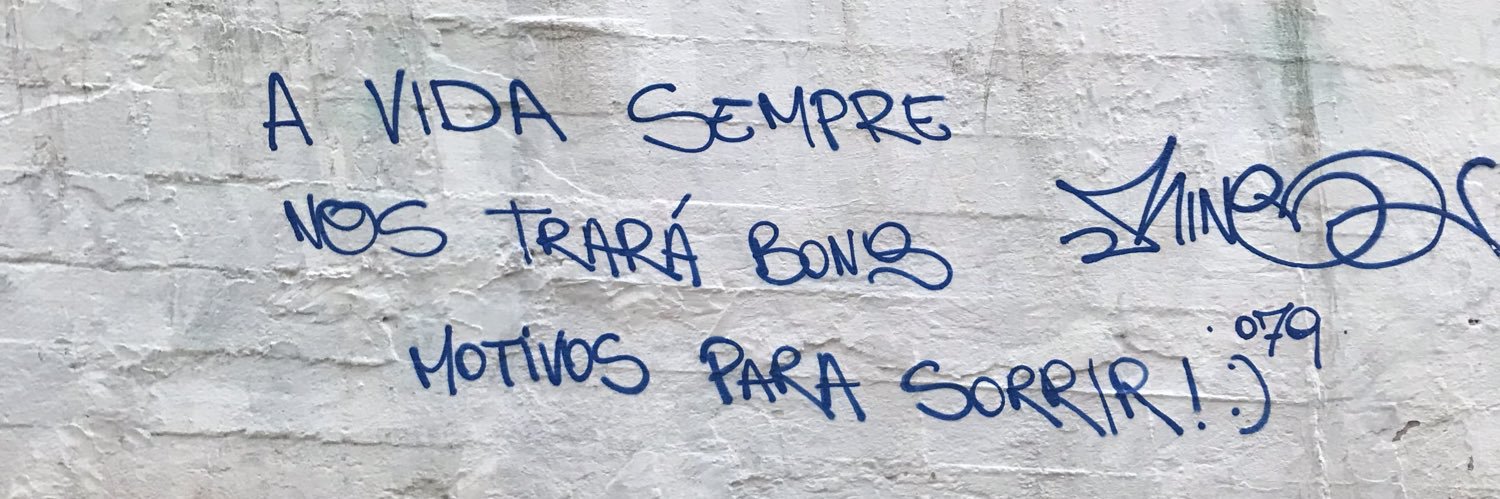 A VIDA SEMPRE
NOS TRARÁ BONS
MOTIVOS PARA SORRIR! :)
079